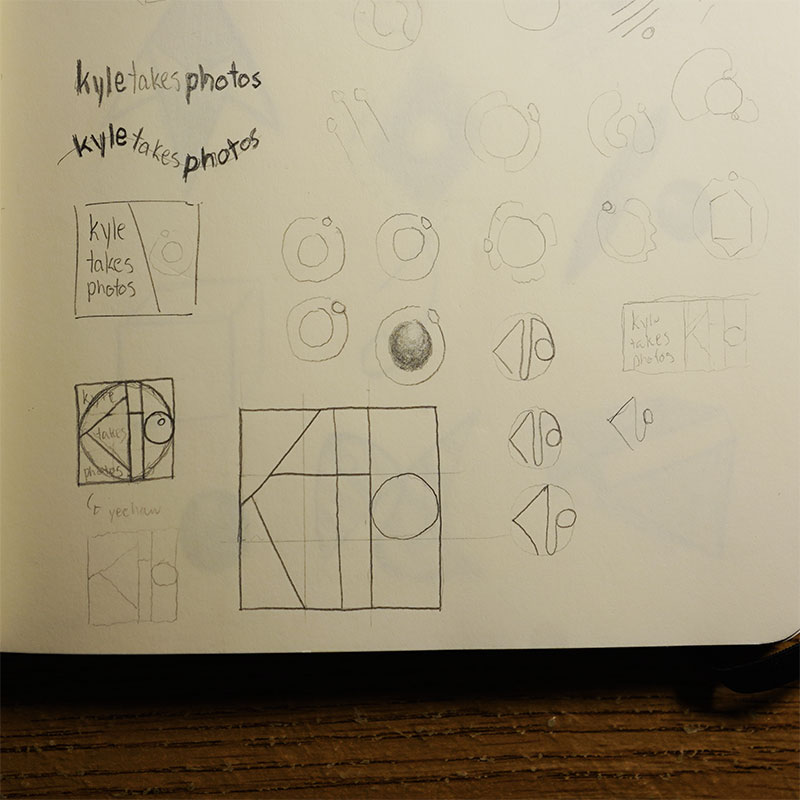 kyletakesphotos
kyletakesphotos
kyle
takes
photos
kyle
takes
photos
kyle
takes
photos
yeehaw